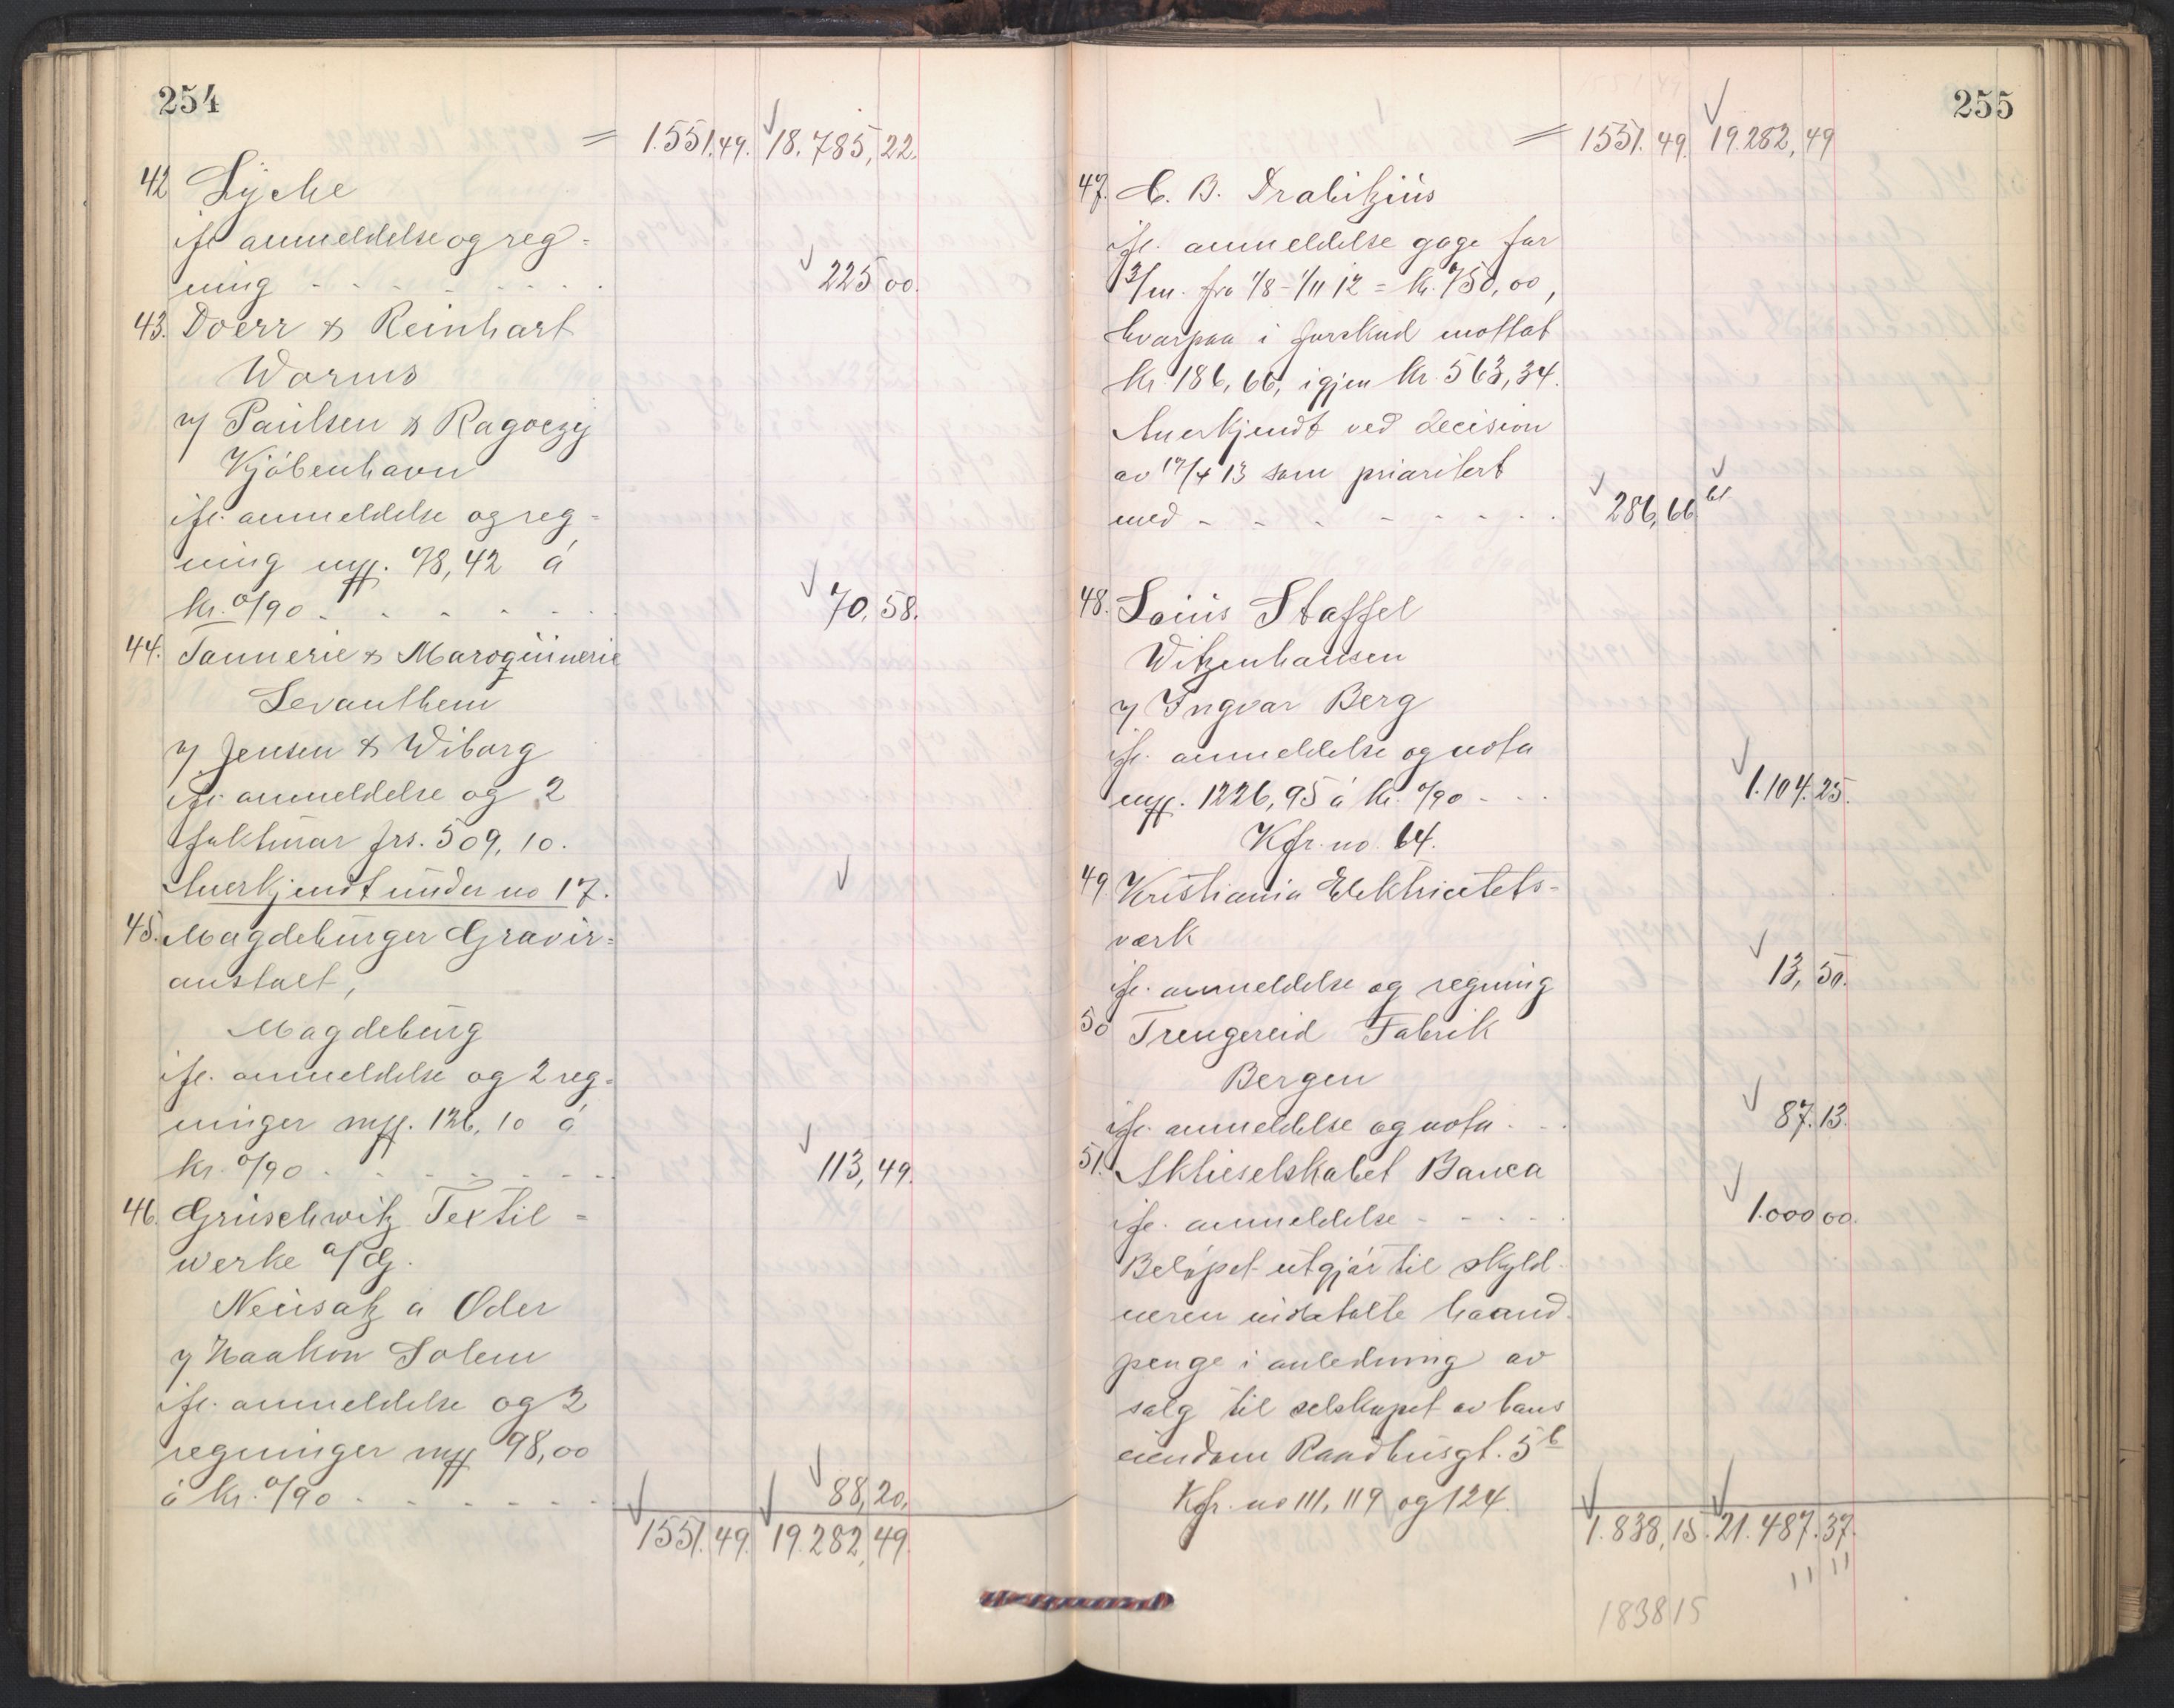 254
= 1.551.49. 18.785,22.
42 Lyche
ifl. anmeldelse og reg-
ning - - - - - - 225 00.
43. Doerr & Reinhart
Worms
v/ Paulsen & Ragoczy
Kjöbenhavn
ifl. anmeldelse og reg-
ning mk. 78,42 á
kr. 0/90 - - - - - 70.58.
44. Tannerie & Maroquinerie
Levanthem
v/ Jensen & Wiborg
ifl. anmeldelse og 2
fakturar frs. 509,10.
Anerkjendt under no 17.
45. Magdeburger Gravir-
anstalt,
Magdeburg
ifl. anmeldelse og 2 reg-
ninger mk. 126,10 á
kr. 0/90 - - - - - - 113,49.
46. Gruschwitz Textil-
werke A/G.
Neusalz a Oder
v/ Haakon Solem
ifl. anmeldelse og 2
regninger mk 98,00
á kr. 0/90 - - - - - - 88,20,
1551.49. 19.282,49.
255
= 1551.49. 19.282,49
47. C. B. Drabitzius
ifl. anmeldelse gage for
3/m. fra 1/8 - 1/11 12 = kr. 750,00,
hvorpaa i forskud mottat
kr. 186,66, igjen kr. 563,34.
Anerkjendt ved decision
av 17/4 13 som prioritert
med - - - - - - - 286,66
48. Louis Staffel
Witzenhausen
v/ Ingvar Berg
ifl. anmeldelse og nota
mk. 1226,95 á kr. 0/90 - - - 1.104.25.
Kfr. no. 64.
49 Kristiania Elektricitets-
værk
ifl. anmeldelse og regning 13,50.
50 Trengereid Fabrik
Bergen
ifl. anmeldelse og nota - - 87.13.
51. Aktieselskabet Banca
ifl. anmeldelse - - - - - 1.000 00.
Beløpet utgjør til skyld-
neren indbetalte haand-
penge i anledning av
salg til selskapet av hans
eiendom Raadhusgt. 5b
Kfr. no 111, 119 og 124.
1.838,15. 21.487.37.
183815